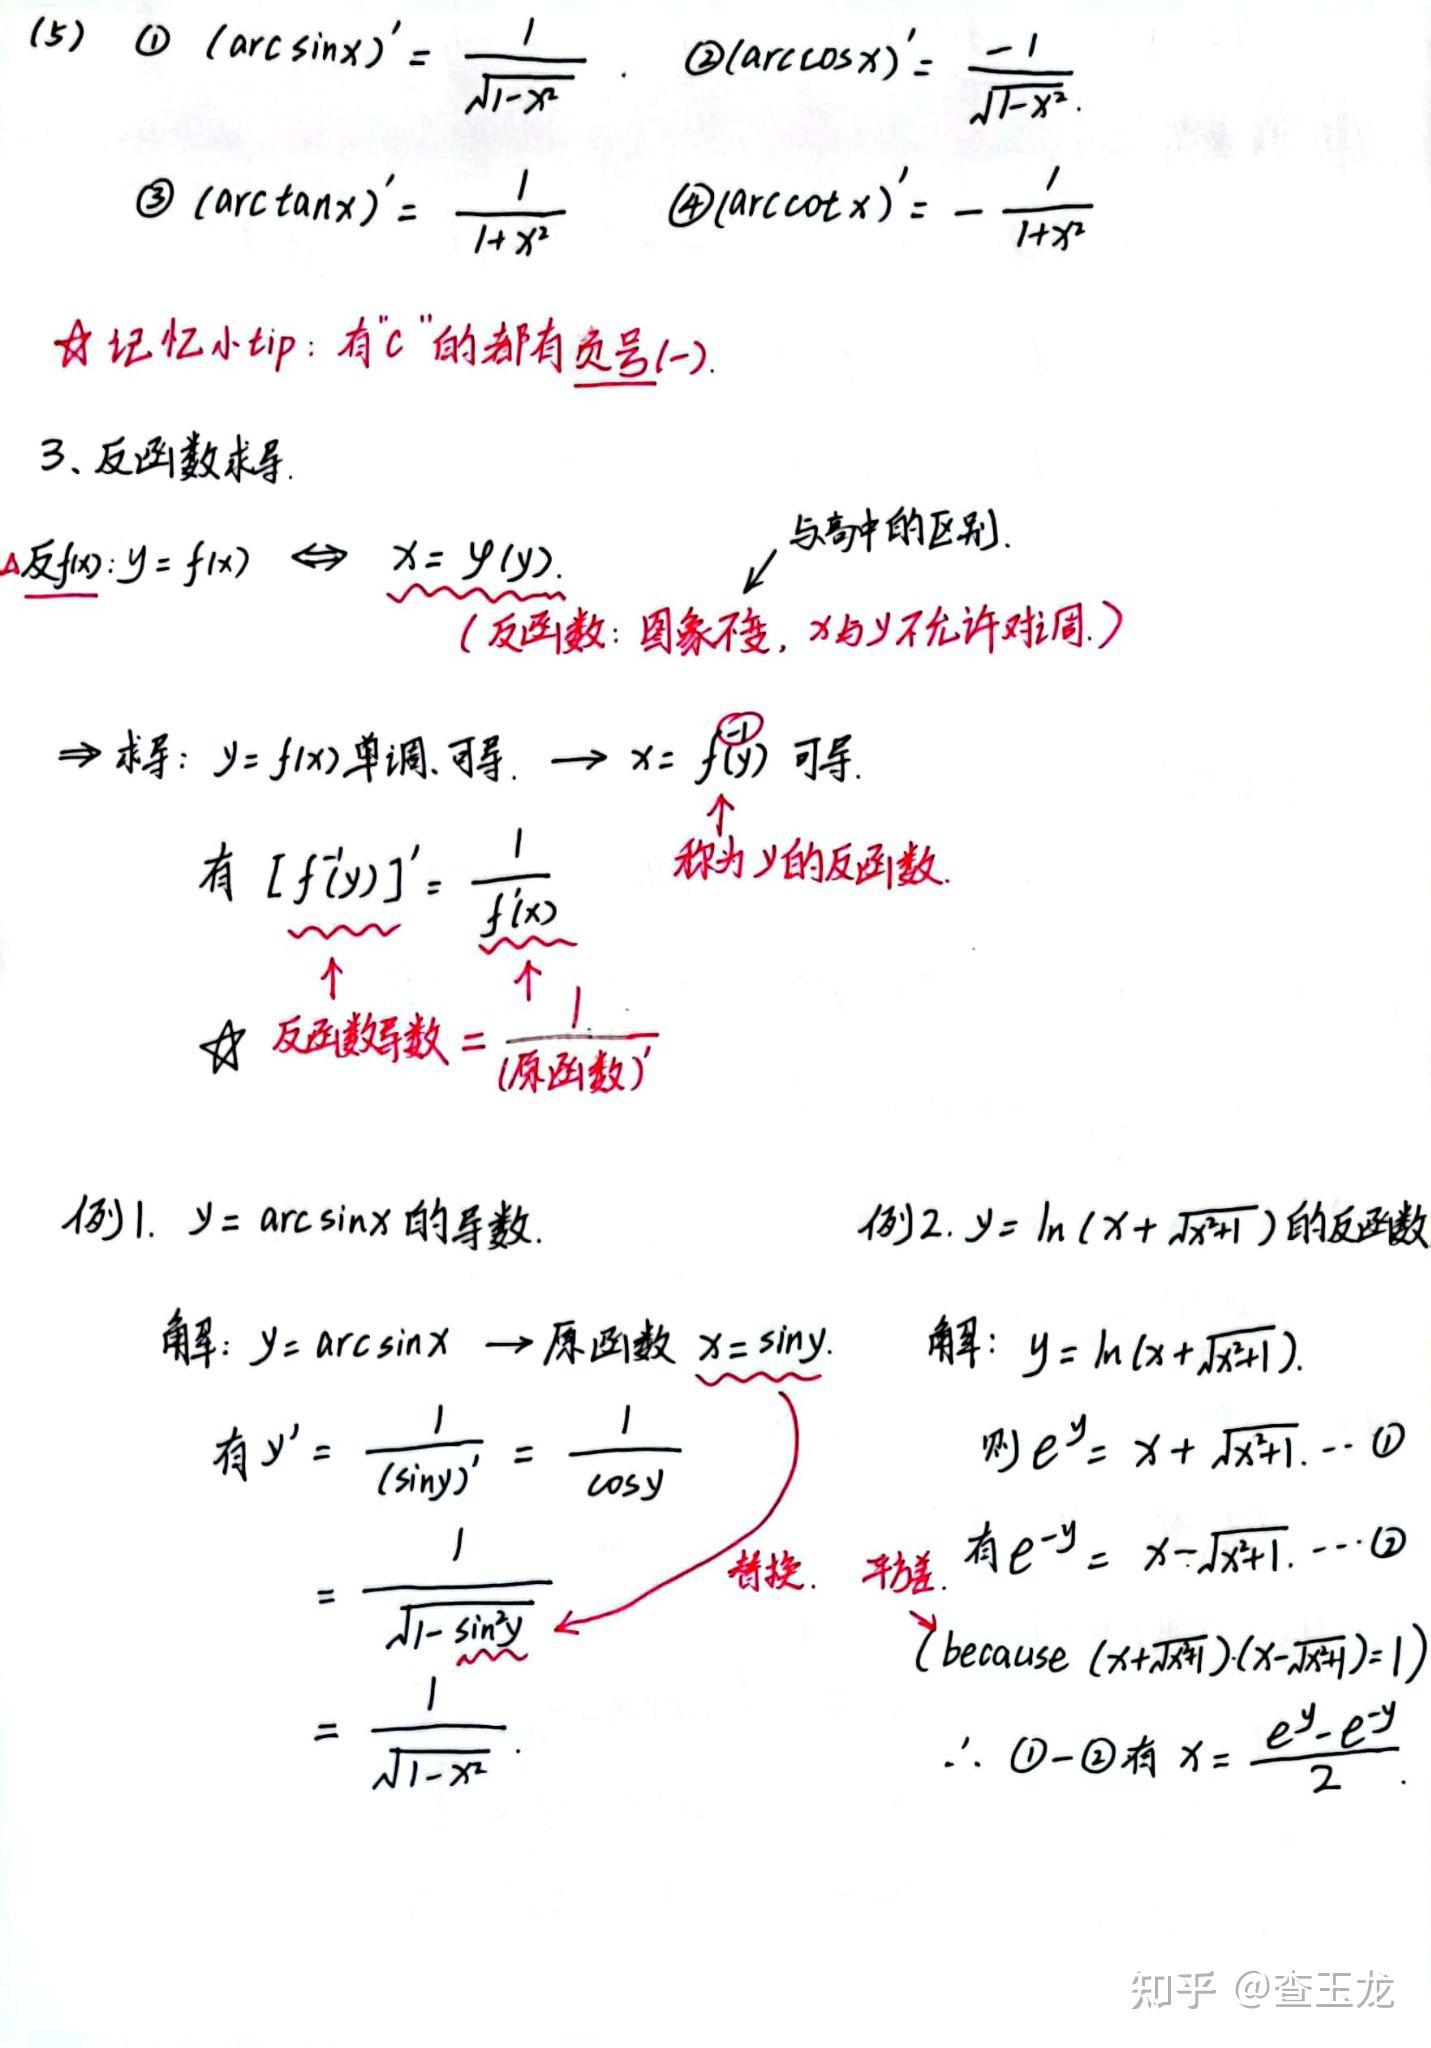 (5) ① (arcsinx)' = 1/√(1-x²). ②(arccosx)' = -1/√(1-x²).
③ (arctanx)' = 1/(1+x²) ④(arccotx)' = - 1/(1+x²)
☆ 记忆小tip：有"c"的都有负号(-).
3、反函数求导.
与高中的区别.
△反f(x)：y = f(x) ⇔ x = φ(y).
(反函数：图象不变，x与y不允许对调.)
⇒ 求导：y = f(x)单调、可导. → x = f⁻¹(y) 可导.
↑ 称为y的反函数.
有 [f⁻¹(y)]' = 1/f'(x)
↑ ↑
☆ 反函数导数 = 1/(原函数)'
例1. y = arcsinx 的导数.
解：y = arcsinx → 原函数 x = siny.
有 y' = 1/(siny)' = 1/cosy
= 1/√(1-sin²y)
替换.
= 1/√(1-x²).
例2. y = ln(x+√(x²+1))的反函数
解：y = ln(x+√(x²+1)).
则 e^y = x+√(x²+1). … ①
有 e^-y = x-√(x²+1). … ②
平方差.
(because (x+√(x²+1))·(x-√(x²+1))=1)
∴ ①-② 有 x = (e^y - e^-y)/2.
知乎 @查玉龙